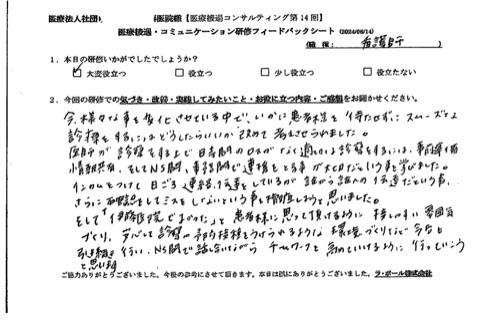 医療法人社団 医院様【医療接遇コンサルティング第14回】
医療接遇・コミュニケーション研修フィードバックシート (2024/06/14)
(職種: 看護助手)
1. 本日の研修いかがでしたでしょうか?
☑大変役立つ □役立つ □少し役立つ □役立たない
2. 今回の研修での気づき・改善・実践してみたいこと・お役に立つ内容・ご感想をお聞かせください。
今、様々な事を変化させている中で、いかに患者様を待たせずにスムーズな
診療をするにはどうしたらいいか改めて考えさせられました。
医師が診察をする上で日、時間のロスがなく適切な診察をするには、事前準備
情報共有、そしてNS間、事務間で連携をとる事が大切だという事を学びました。
インカムをつけて日ごろ連絡、伝達をしているが
さらに再確認をしてミスをしないという事を徹底しようと思いました。
そして 医院で良かったと、患者様に思って頂けるように接しやすい雰囲気
づくり、安心して診察や予約接種をうけられるような環境づくりなど今後も
引き続き行い、NS間で話し合いながらチームワークを高めていけるように行っていこう
と思います
ご協力ありがとうございました。今後の参考にさせて頂きます。本日は誠にありがとうございました。ラ・ポール株式会社